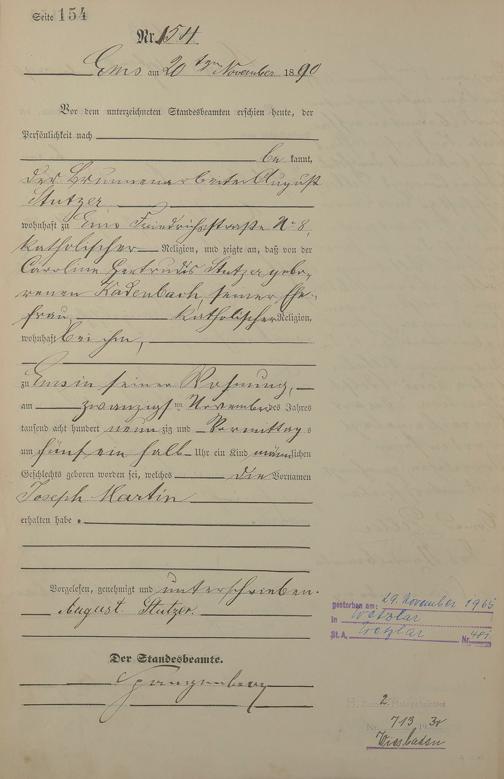 Seite 154
Nr. 154
Ems am 20 ten November 1890
Vor dem unterzeichneten Standesbeamten erschien heute, der
Persönlichkeit nach
be kannt,
der Brunnenarbeiter August
Stutzer
wohnhaft zu Ems Friedrichsstraße No 8,
katholischer Religion, und zeigte an, daß von der
Caroline Gertrudis Stutzer gebo-
renen Kadenbach seiner Ehe-
frau, katholischer Religion,
wohnhaft bei ihm,
zu Ems in seiner Wohnung,
am zwanzigsten November des Jahres
tausend acht hundert neun zig und Vormittag s
um fünf ein halb Uhr ein Kind männlichen
Geschlechts geboren worden sei, welches die Vornamen
Joseph Martin
erhalten habe.
Vorgelesen, genehmigt und unterschrieben.
August Stutzer.
Der Standesbeamte.
Spangenberg
gestorben am: 29. November 1965
in Wetzlar
St. A. Wetzlar Nr. 481
2
713 30
Wiesbaden